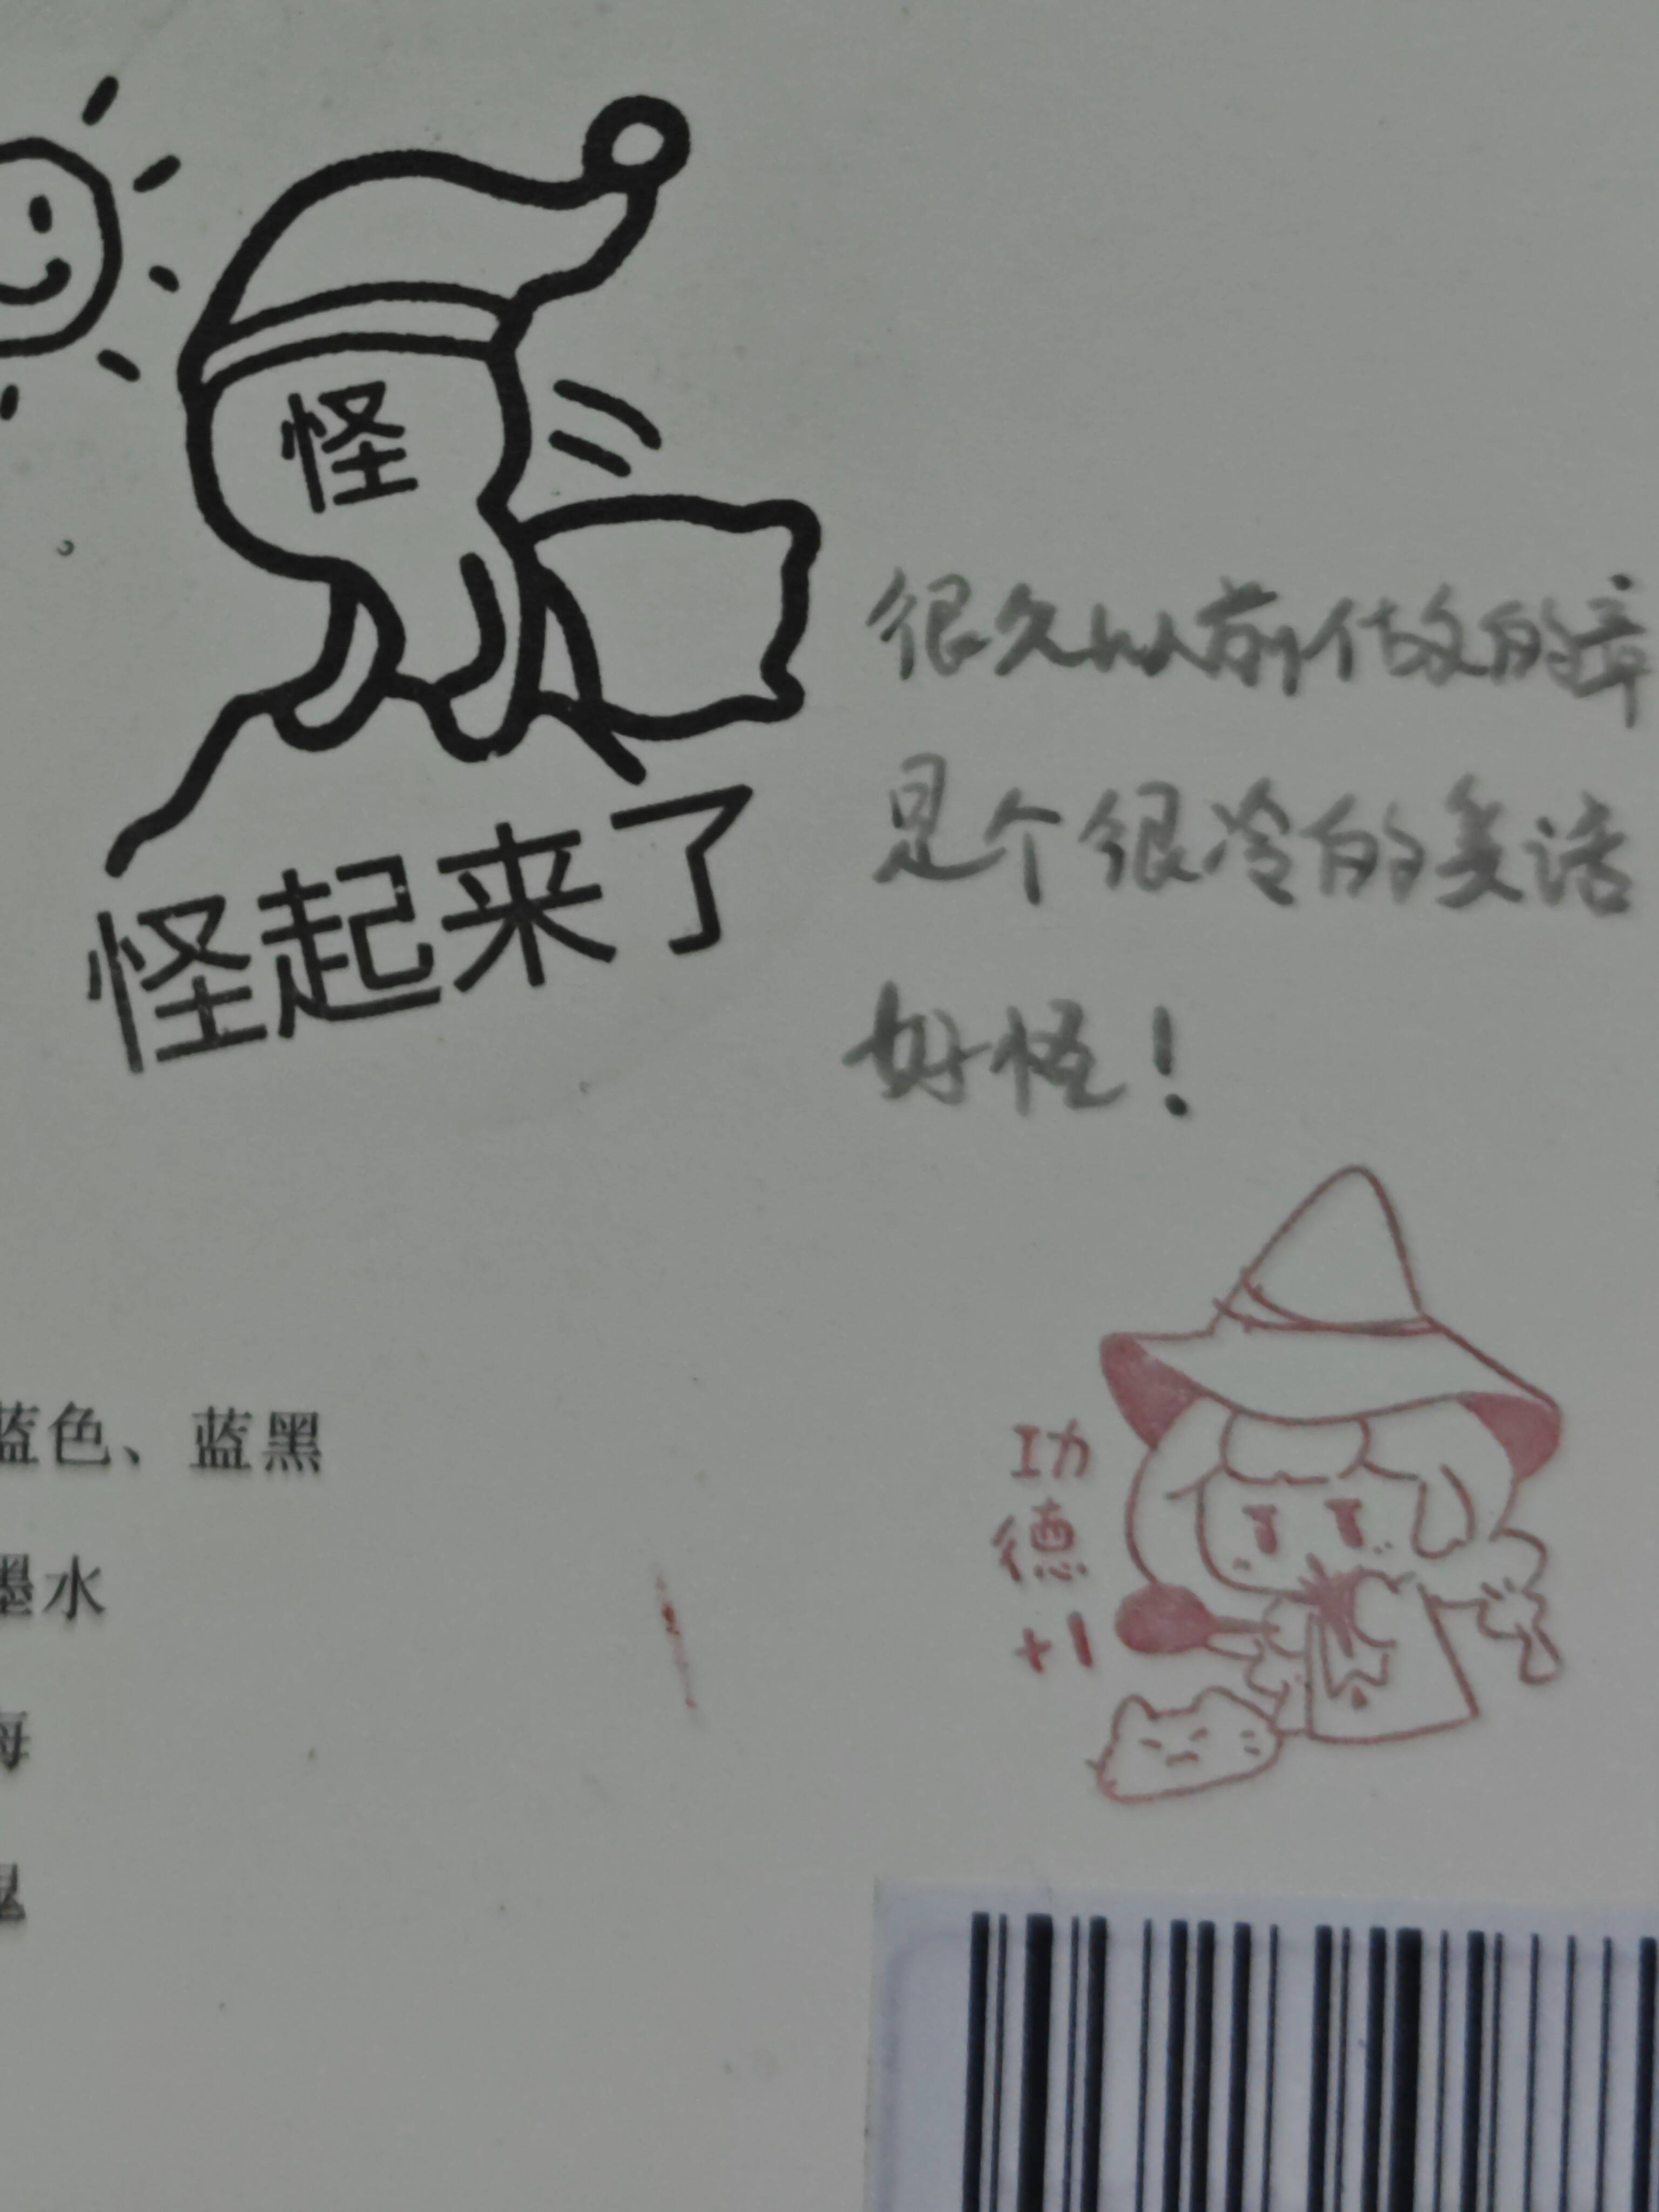 怪
怪起来了
很久以前做的章
是个很冷的笑话
好怪!
功
德
+1
蓝色、蓝黑
墨水